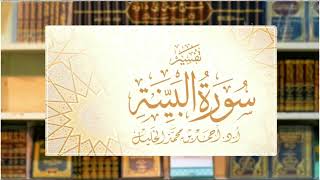 تفسير
سُورَةُ البَيِّنَة
أ.د. أحمد بن محمد الخليل